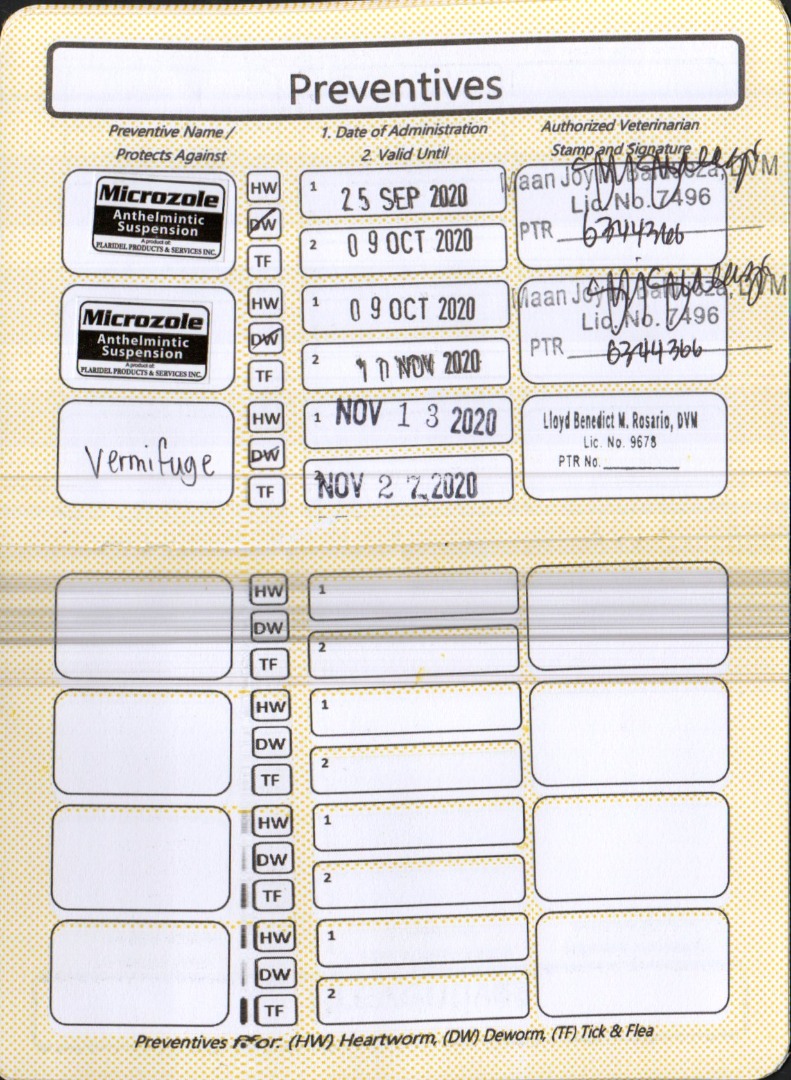 Preventives
Preventive Name /
Protects Against
1. Date of Administration
2. Valid Until
Authorized Veterinarian
Stamp and Signature
Microzole
Anthelmintic
Suspension
A product of:
PLARIDEL PRODUCTS & SERVICES INC.
HW
DW
TF
1 25 SEP 2020
2 09 OCT 2020
Maan Joy DVM
Lic. No. 7496
PTR 6344366
Microzole
Anthelmintic
Suspension
A product of:
PLARIDEL PRODUCTS & SERVICES INC.
HW
DW
TF
1 09 OCT 2020
2 10 NOV 2020
Maan Joy DVM
Lic. No. 7496
PTR 6344366
Vermifuge
HW
DW
TF
1 NOV 13 2020
2 NOV 27 2020
Lloyd Benedict M. Rosario, DVM
Lic. No. 9678
PTR No.
HW
DW
TF
1
2
HW
DW
TF
1
2
HW
DW
TF
1
2
HW
DW
TF
1
2
Preventives For: (HW) Heartworm, (DW) Deworm, (TF) Tick & Flea